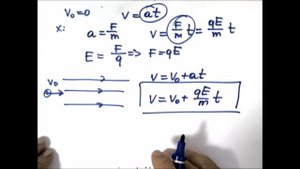 V₀=0 V = at
x: a = F/m V = F/m t = qE/m t
E = F/q => F=qE
V₀ V = V₀ + at
V = V₀ + qE/m t